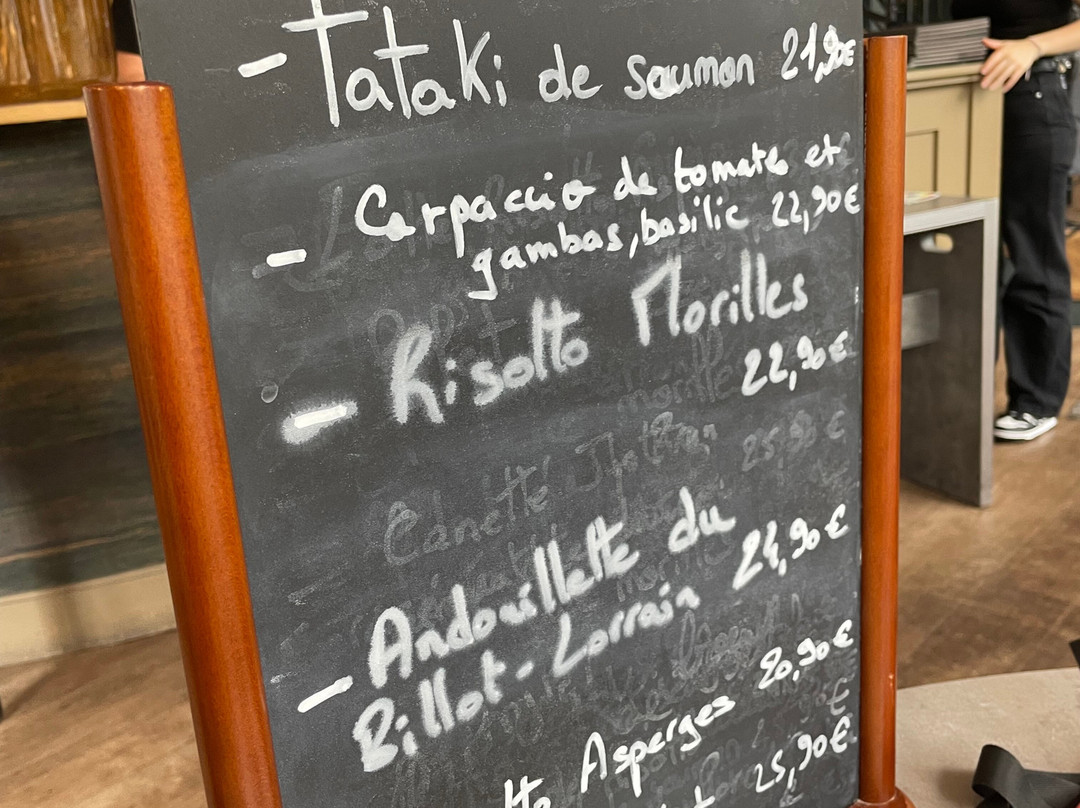 - Tataki de saumon 21,90€
- Carpaccio de tomates et
gambas, basilic 22,90€
- Risotto Morilles
22,90€
Canette 25,90€
- Andouillette du
Billot-Lorrain 24,90€
Asperges 20,90€
25,90€